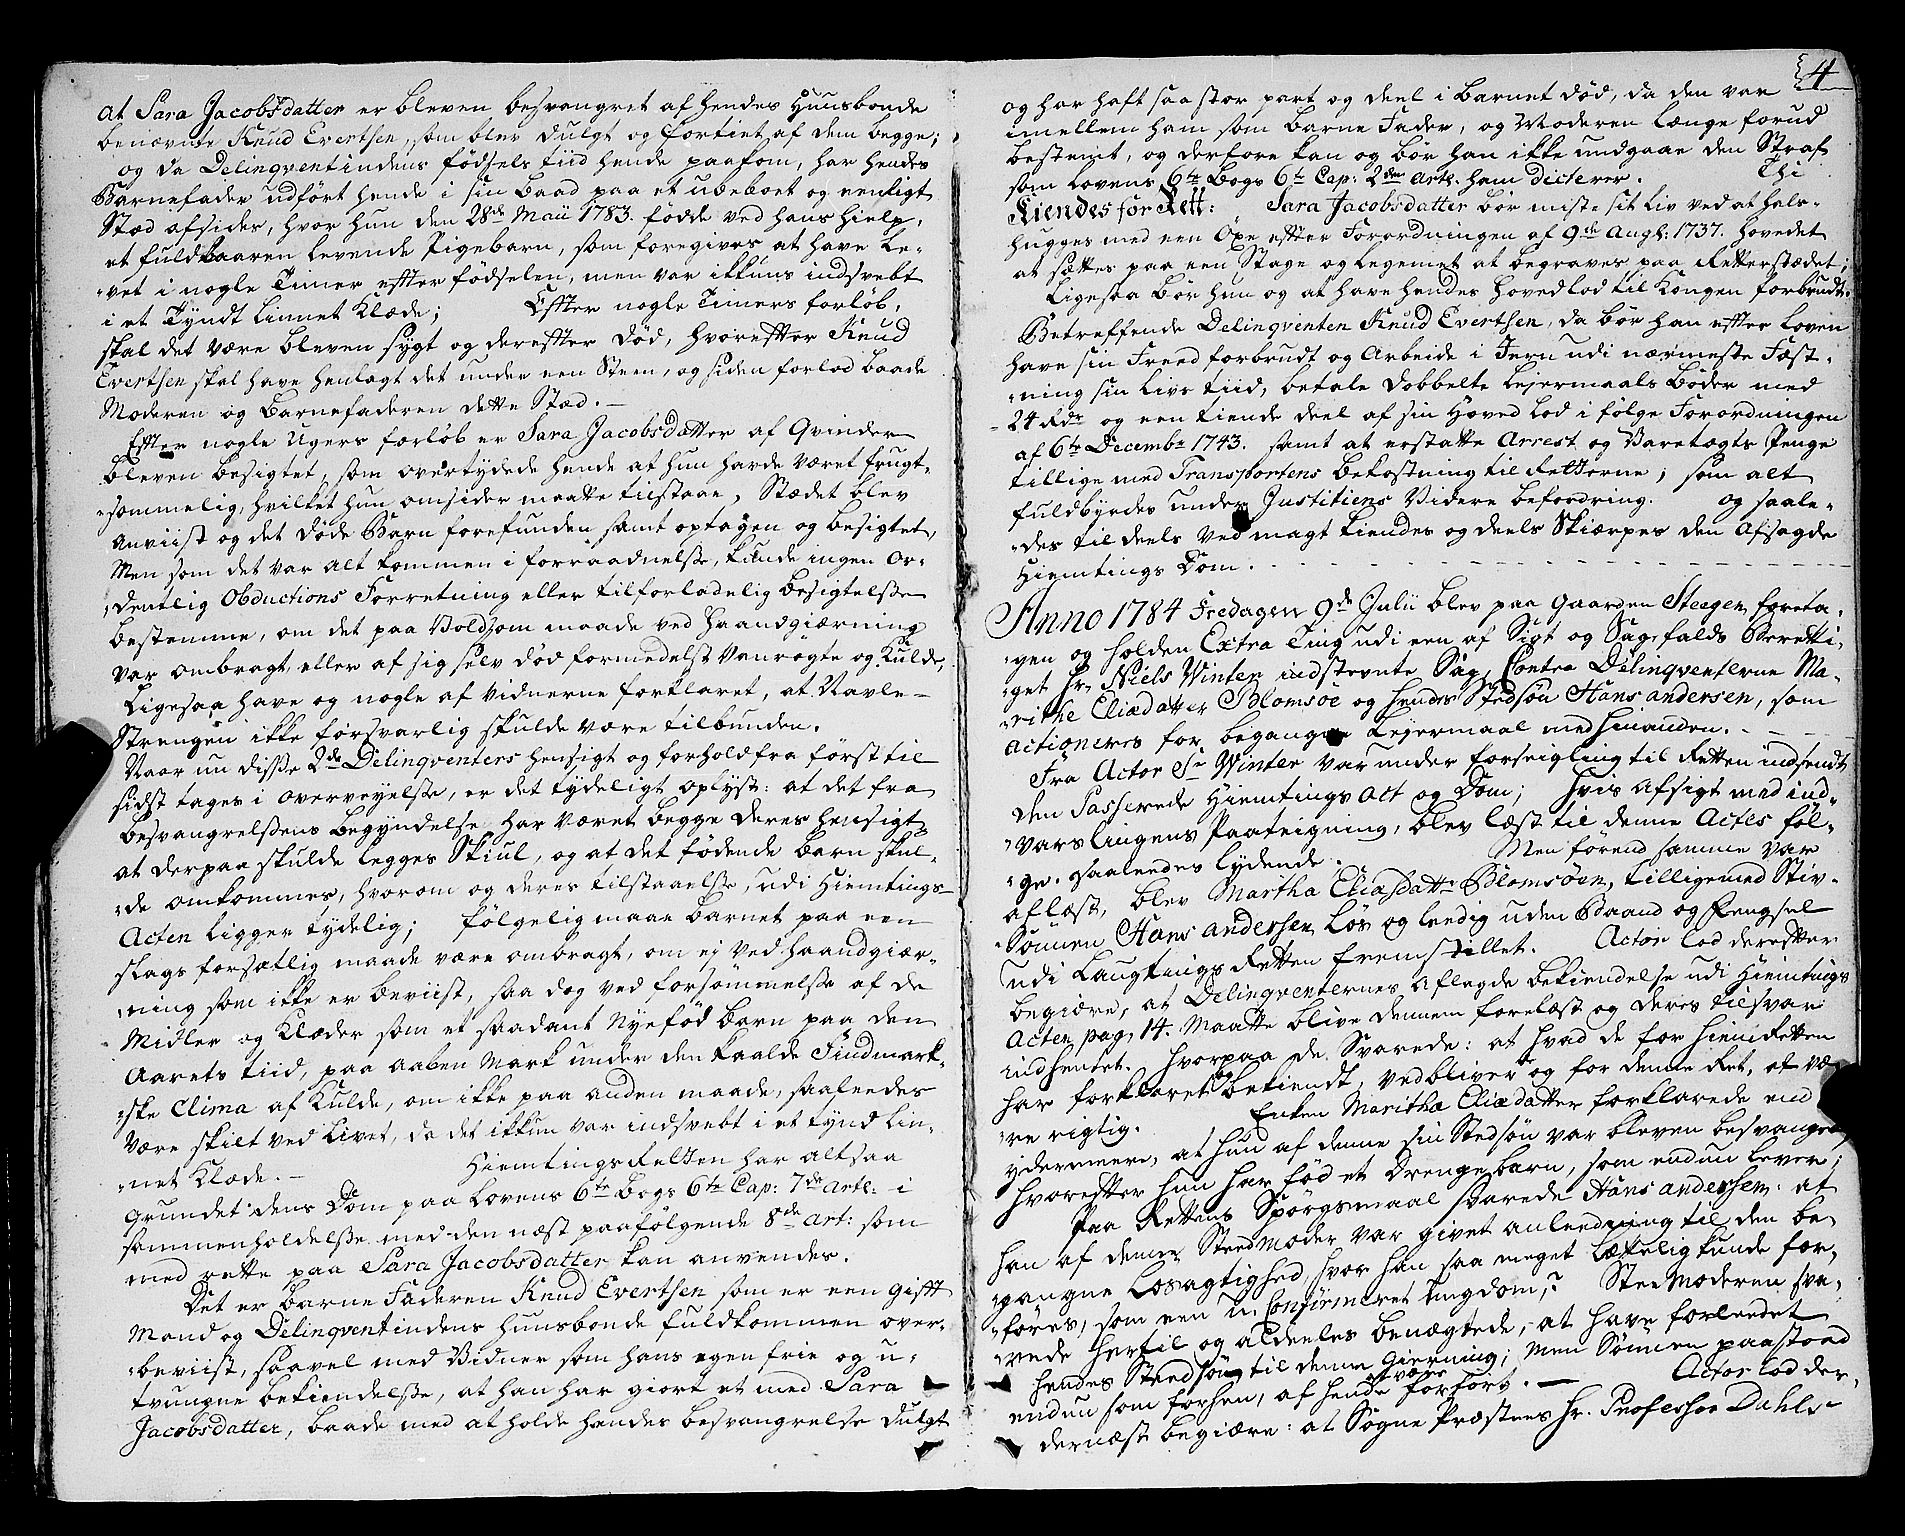 at Sara Jacobsdatter er bleven besvangret af hendes Huusbonde
benævnte Knud Evertsen, som blev dulgt og fortiet af dem begge;
og da Delinqventindens fødsels tiid hende paakom, har hendes
Barnefader udført hende i sin baad paa et ubeboet og eenligt
Stæd afsides, hvor hun den 28de Maii 1783. fødde ved hans hielp,
et fuldbaaren levende Pigebarn, som foregives at have le-
vet i nogle Timer efter fødselen, men var ikkuns indsvebt
i et Tyndt Linnet Klæde; Efter nogle Timers forløb,
skal det være bleven sygt og derefter død, hvorefter Knud
Evertsen skal have henlagt det under een Steen, og siden forlod baade
Moderen og Barnefaderen dette Stæd.
Efter nogle Ugers forløb er Sara Jacobsdatter af Qvinder
bleven besigtet, som overtydede hende at hun havde været frugt-
sommelig, hvilket hun omsider maatte tilstaae, Stædet blev
anviist og det døde Barn forefunden samt optagen og besigtet,
Men som det var alt kommen i forraadnelse, kunde ingen Or-
dentlig Obductions Forretning eller tilforladelig besigtelse
bestemme, om det paa Voldsom maade ved haandgiærning
var ombragt, eller af sig selv død formedelst Vanrøgte og Kulde,
Ligesaa have og nogle af vidnerne forklaret, at Navle-
Strengen ikke forsvarlig skulde være tilbunden.
Naar nu disse 2de Delinqventers hensigt og forhold fra først til
sidst tages i overveyelse, er det tydeligt oplyst: at det fra
besvangrelsens begyndelse har været begge deres hensigt
at derpaa skulde legges Skiul, og at det fødende barn skul-
de omkommes, hvorom og deres tilstaaelse, udi Hiemtings-
Acten ligger tydelig; følgelig maae barnet paa een
slags forsætlig maade være ombragt, om ej ved haandgiær-
ning som ikke er beviist, saa dog ved forsømmelse af de
Midler og Klæder som et saadant Nyefød barn paa den
Aarets tiid, paa aaben Mark under den kaalde Findmark-
ske Clima af Kulde, om ikke paa anden maade, saaleedes
være skilt ved Livet, da det ikkun var indsvebt i et tynd Lin-
net Klæde. Hiemtings Retten har altsaa
Grundet dens Dom paa Lovens 6te Bogs 6te Cap: 7de Artl: i
sammenholdelse med den næst paafølgende 8de Art: som
med rette paa Sara Jacobsdatter kan anvendes.
Det er barne Faderen Knud Evertsen som er een gift
Mand og Delinqventindens huusbonde fuldkommen over-
beviist, saavel med Vidner som hans egen frie og u-
tvungne bekiendelse, at han har giort et med Sara
Jacobsdatter, baade med at holde hendes besvangrelse dulgt
4
og har haft saa stor part og deel i barnet død, da den var
imellem ham som barne Fader, og Moderen længe forud
bestemt, og derfore kan og bør han ikke undgaae den Straf
som Lovens 6te Bogs 6te Cap: 2den Artl. ham dicterer. Thi
Kiendes for Rett: Sara Jacobsdatter bør miste sit Liv ved at hals-
hugges med een Oxe efter Forordningen af 9de Augs: 1737. hovedet
at sættes paa een Stage og legemet at begraves paa Retterstædet;
Ligesaa bør hun og at have hendes hovedlod til Kongen forbrudt.
Betreffende Delinqventen Knud Evertsen, da bør han efter Loven
have sin Freed forbrudt og Arbeide i Jern udi nærmeste Fæst-
ning sin Livs tiid, betale dobbelte Lejermaals bøder med
24 Rdr og een tiende deel af sin Hoved Lod i følge Forordningen
af 6te Decembr 1743. samt at erstatte Arrest og Varetægts Penge
tillige med Transportens bekostning til Retterne; som alt
fuldbyrdes under Justitiens Videre befordring. og saale-
des til deels ved magt kiendes og deels Skiærpes den Afsagde
Hiemtings Dom.
Anno 1784 Fredagen 9de Julii blev paa Gaarden Steegen, foreta-
gen og holden Extra Ting udi een af Sigt og Sagefalds Beretti-
get Hr. Niels Winter indstevnte Sag, Contra Delinqventerne Ma-
rithe Eliædatter Blomsøe og hendes Stedsøn Hans andersen, som
actioneres for begangne Lejermaal med hinanden.
Fra Actor Sr Winter var under forseigling til Retten indsendt
den Passerede Hiemtings Act og Dom; hvis Afsigt med ind-
varslingens Paateigning, blev læst til denne Actes føl-
ge. saaleedes lydende. Men førend samme var
aflæst, blev Martha Eliæsdattr Blomsøen, tillige med Stiv-
Sønnen Hans andersen, Løs og leedig uden Baand og Fengsel
udi Laugtings Retten fremstillet. Actor lod derefter
begiære, at Delinqventernes Aflagde bekiendelse udi Hiemtings
Acten pag. 14. maatte blive dennem forelæst og deres tilsvar
indhentet. hvorpaa de Svarede: at hvad de for hiemRetten
har forklaret og bekiendt, vedbliver og for denne Ret, at væ-
re rigtig. Enken Marithe Eliædatter forklarede end
ydermere, at hun af denne sin Stedsøn var bleven besvangret,
hvorefter hun har fød et Drengebarn, som endnu lever;
Paa Rettens Spørgsmaal svarede Hans andersen: at
han af denne Steedmoder var givet anleedning til den be-
gangne Løsagtighed, hvor han saa meget lættelig kunde for-
føres, som een u-Confirmeret Ungdom? SteeModeren sva-
rede hertil og aldeeles benægtede, at have forleedet
hendes Steedsøn til denne Gierning; men Sønnen paastoed
endnu som forhen, af hende at være forført. Actor lod der-
dernæst begiære: at Sogne Præstens Hr. Professor Dahls